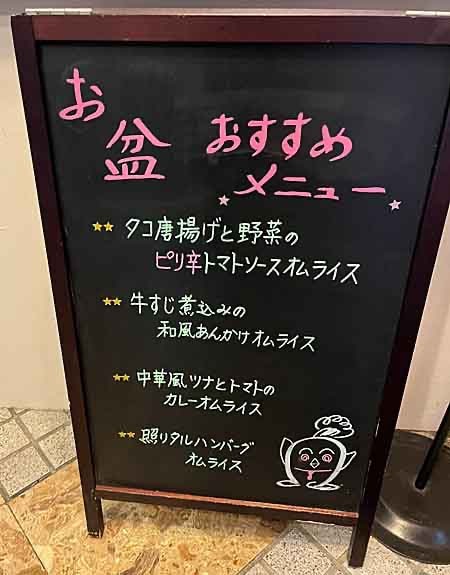 お盆 おすすめ
メニュー
タコ唐揚げと野菜の
ピリ辛トマトソースオムライス
牛すじ煮込みの
和風あんかけオムライス
中華風ツナとトマトの
カレーオムライス
照りタルハンバーグ
オムライス